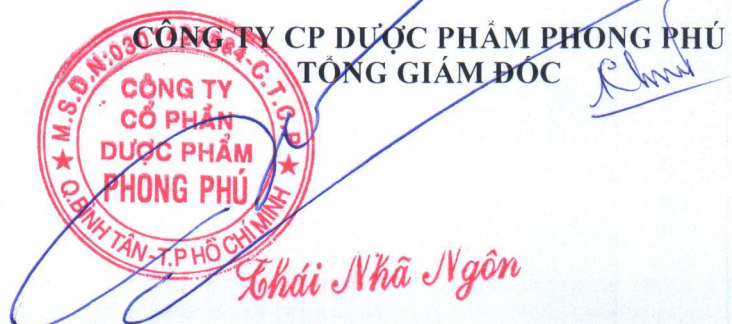 CÔNG TY CP DƯỢC PHẨM PHONG PHÚ
TỔNG GIÁM ĐỐC
CÔNG TY
CỔ PHẦN
DƯỢC PHẨM
PHONG PHÚ
★ M.S.D.N: -C.T.C.P ★
Q.BÌNH TÂN-T.P HỒ CHÍ MINH
Thái Nhã Ngôn